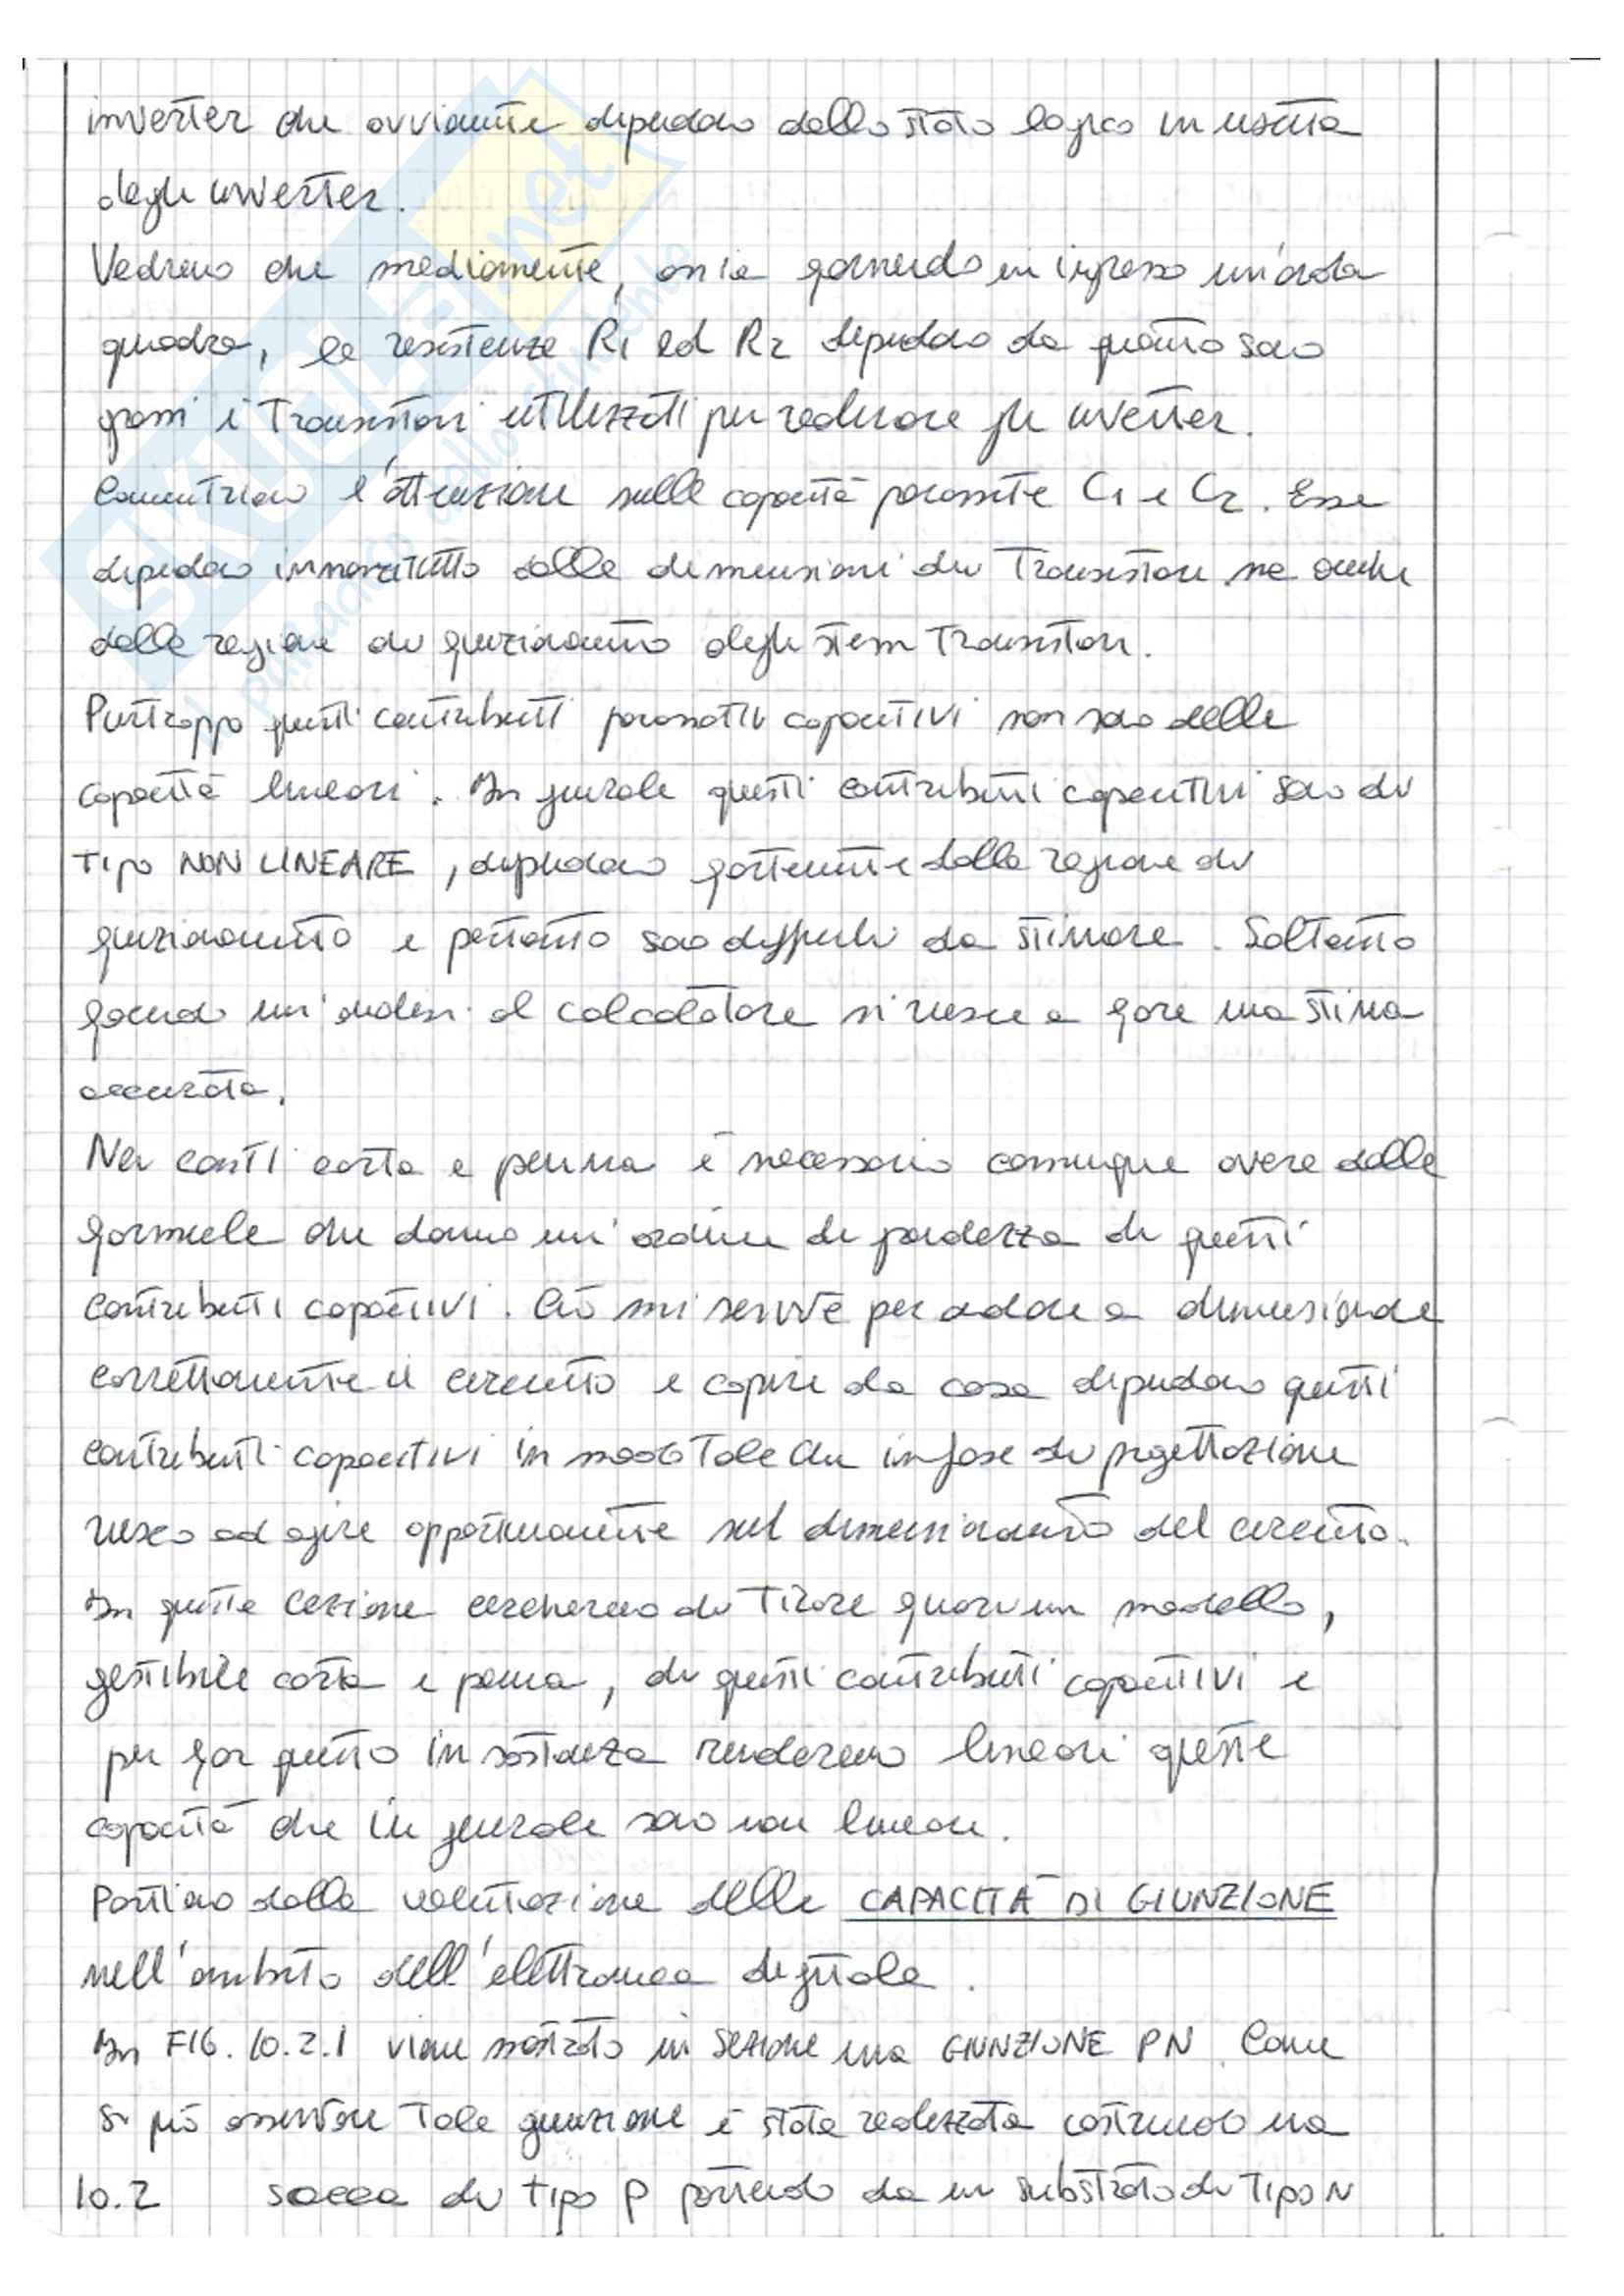 inverter che ovviamente dipendono dallo stato logico in uscita
degli inverter.
Vedremo che mediamente, ossia fornendo in ingresso un'onda
quadra, le resistenze R1 ed R2 dipendono da quanto sono
grossi i transistori utilizzati per realizzare gli inverter.
Concentriamo l'attenzione sulle capacità parassite C1 e C2. Esse
dipendono innanzitutto dalle dimensioni dei transistori ma anche
dalla regione di funzionamento degli stessi transistori.
Purtroppo questi contributi parassiti capacitivi non sono delle
capacità lineari. In generale questi contributi capacitivi sono di
tipo NON LINEARE, dipendono fortemente dalla regione di
funzionamento e pertanto sono difficili da stimare. Soltanto
facendo un'analisi al calcolatore si riesce a fare una stima
accurata.
Nei conti carta e penna è necessario comunque avere delle
formule che danno un'ordine di grandezza di questi
contributi capacitivi. Ciò mi serve per andare a dimensionare
correttamente il circuito e capire da cosa dipendono questi
contributi capacitivi in modo tale che in fase di progettazione
riesco ad agire opportunamente sul dimensionamento del circuito.
In questa lezione cercheremo di tirare fuori un modello,
gestibile carta e penna, di questi contributi capacitivi e
per far questo in sostanza renderemo lineari queste
capacità che in generale sono non lineari.
Partiamo dalla valutazione delle CAPACITÀ DI GIUNZIONE
nell'ambito dell'elettronica digitale.
In FIG. 10.2.1 viene mostrato in sezione una GIUNZIONE PN. Come
si può osservare tale giunzione è stata realizzata costruendo una
10.2 sacca di tipo P partendo da un substrato di tipo N
SKUOLA.net